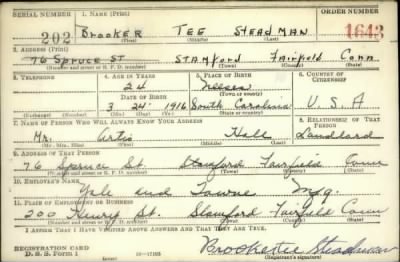 SERIAL NUMBER 1. NAME (Print) ORDER NUMBER
202 BROOKER TEE STEADMAN 1643
(First) (Middle) (Last)
2. ADDRESS (Print)
76 SPRUCE ST STAMFORD FAIRFIELD CONN
(Number and street or R. F. D. number) (Town) (County) (State)
3. TELEPHONE 4. AGE IN YEARS 5. PLACE OF BIRTH 6. COUNTRY OF CITIZENSHIP
24
(Town or county)
DATE OF BIRTH
3 24 1916 South Carolina U.S.A
(Exchange) (Number) (Mo.) (Day) (Yr.) (State or country)
7. NAME OF PERSON WHO WILL ALWAYS KNOW YOUR ADDRESS 8. RELATIONSHIP OF THAT PERSON
Mr. Artis Hall Landlord
(Mr., Mrs., Miss) (First) (Middle) (Last)
9. ADDRESS OF THAT PERSON
76 Spruce St. Stamford Fairfield Conn
(Number and street or R. F. D. number) (Town) (County) (State)
10. EMPLOYER'S NAME
Yale and Towne Mfg.
11. PLACE OF EMPLOYMENT OR BUSINESS
200 Henry St. Stamford Fairfield Conn
(Number and street or R. F. D. number) (Town) (County) (State)
I AFFIRM THAT I HAVE VERIFIED ABOVE ANSWERS AND THAT THEY ARE TRUE.
REGISTRATION CARD
D. S. S. Form 1
Brookertee Steadman
(Registrant's signature)